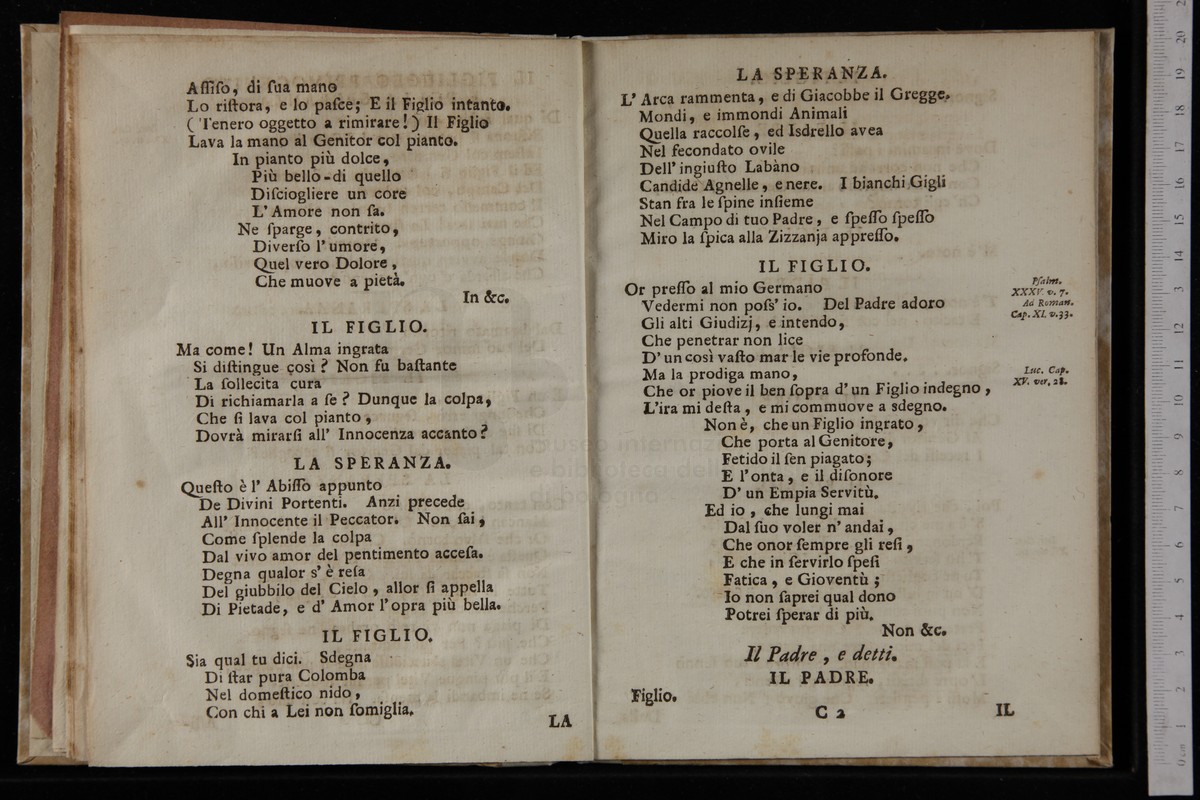 Aſſiſo, di ſua mano
Lo riſtora, e lo paſce; E il Figlio intanto.
( Tenero oggetto a rimirare! ) Il Figlio
Lava la mano al Genitor col pianto.
In pianto più dolce,
Più bello-di quello
Diſciogliere un core
L' Amore non ſa.
Ne ſparge, contrito,
Diverſo l' umore,
Quel vero Dolore,
Che muove a pietà.
In &c.
IL FIGLIO.
Ma come! Un Alma ingrata
Si diſtingue così? Non fu baſtante
La ſollecita cura
Di richiamarla a ſe? Dunque la colpa,
Che ſi lava col pianto,
Dovrà mirarſi all' Innocenza accanto?
LA SPERANZA.
Queſto è l' Abiſſo appunto
De Divini Portenti. Anzi precede
All' Innocente il Peccator. Non ſai,
Come ſplende la colpa
Dal vivo amor del pentimento acceſa.
Degna qualor s' è reſa
Del giubbilo del Cielo, allor ſi appella
Di Pietade, e d' Amor l' opra più bella.
IL FIGLIO.
Sia qual tu dici. Sdegna
Di ſtar pura Colomba
Nel domeſtico nido,
Con chi a Lei non ſomiglia.
LA
LA SPERANZA.
L' Arca rammenta, e di Giacobbe il Gregge.
Mondi, e immondi Animali
Quella raccolſe, ed Isdrello avea
Nel fecondato ovile
Dell' ingiuſto Labàno
Candide Agnelle, e nere. I bianchi Gigli
Stan fra le ſpine inſieme
Nel Campo di tuo Padre, e ſpeſſo ſpeſſo
Miro la ſpica alla Zizzanja appreſſo.
IL FIGLIO.
Or preſſo al mio Germano
Vedermi non poſs' io. Del Padre adoro
Gli alti Giudizj, e intendo,
Che penetrar non lice
D' un così vaſto mar le vie profonde.
Ma la prodiga mano,
Che or piove il ben ſopra d' un Figlio indegno,
L'ira mi deſta, e mi commuove a sdegno.
Non è, che un Figlio ingrato,
Che porta al Genitore,
Fetido il ſen piagato;
E l' onta, e il diſonore
D' un Empia Servitù.
Ed io, che lungi mai
Dal ſuo voler n' andai,
Che onor ſempre gli reſi,
E che in ſervirlo ſpeſi
Fatica, e Gioventù;
Io non ſaprei qual dono
Potrei ſperar di più.
Non &c.
Il Padre, e detti.
IL PADRE.
Figlio.
C 2
IL
Pſalm.
XXXV. v. 7.
Ad Roman.
Cap. XI. v.33.
Luc. Cap.
XV. ver. 28.